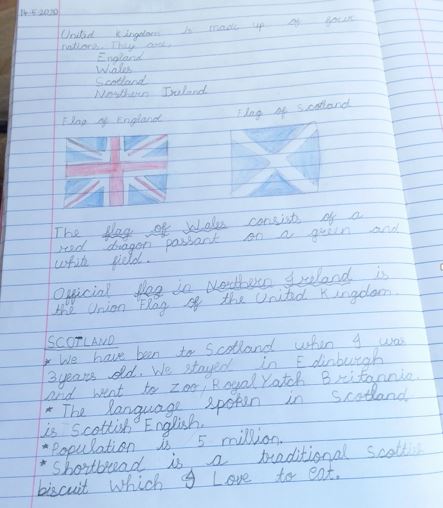 14.5.2020
United Kingdom is made up of four
nations. They are,
England
Wales
Scotland
Northern Ireland
Flag of England
Flag of Scotland
The flag of Wales consists of a
red dragon passant on a green and
white field.
Official flag in Northern Ireland is
the Union Flag of the United Kingdom.
SCOTLAND
* We have been to Scotland when I was
3years old. We stayed in Edinburgh
and went to zoo, Royal Yatch Britannia.
* The language spoken in Scotland
is Scottish English.
* Population is 5 million.
* Shortbread is a traditional Scottish
biscuit which I Love to eat.